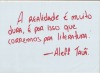 A realidade é muito
dura, é por isso que
corremos pra literatura.